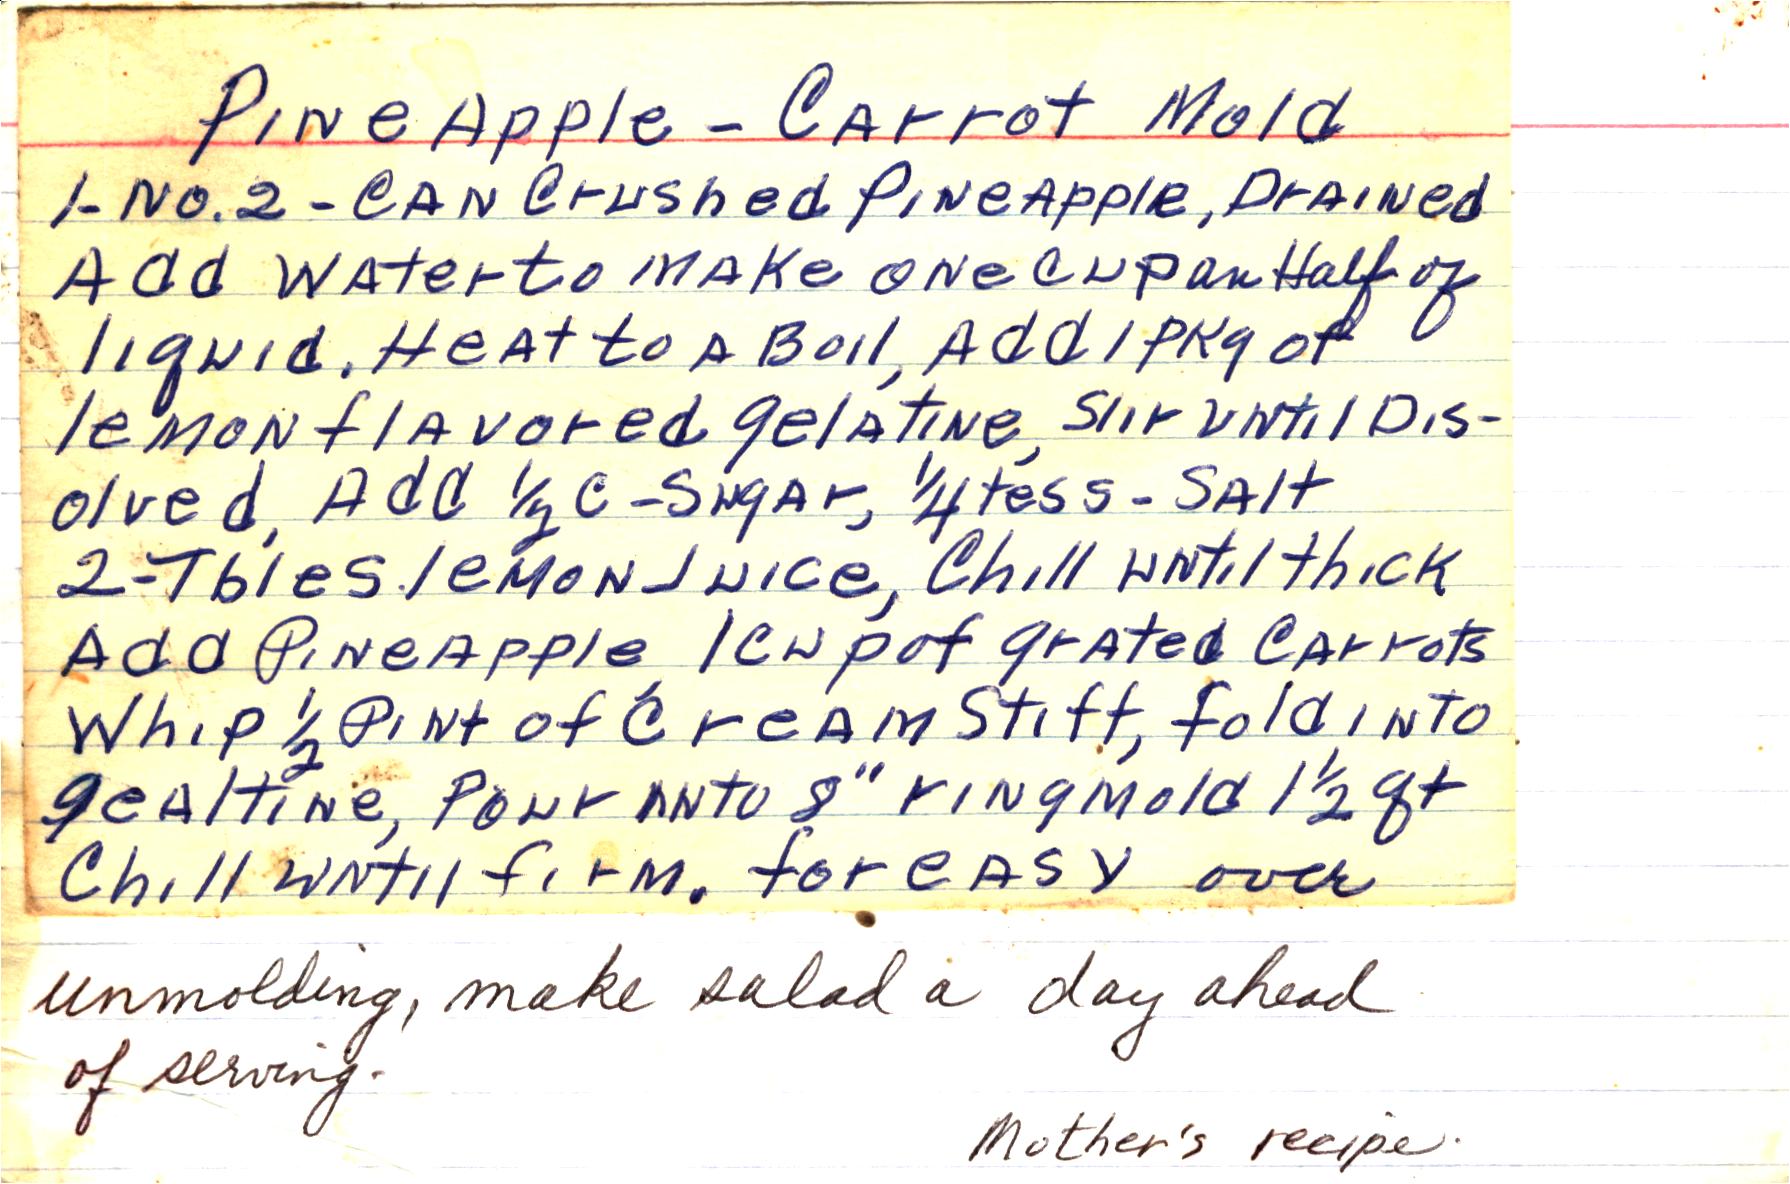 PineApple - Carrot Mold
1-No. 2 - Can Crushed PineApple, Drained
Add Water to Make one Cup an Half of
liquid. Heat to a Boil, Add 1 pkg of
lemon flavored gelatine, Stir until Dis-
olved, Add ½ C - Sugar, ¼ tess - Salt
2 - Tbles. lemon Juice, Chill until thick
Add PineApple, 1 cup of grated Carrots
Whip ½ Pint of Cream Stiff, fold into
gealtine, Pour into 8" ring mold 1½ qt
Chill until firm. for easy over
unmolding, make salad a day ahead
of serving.
Mother's recipe.